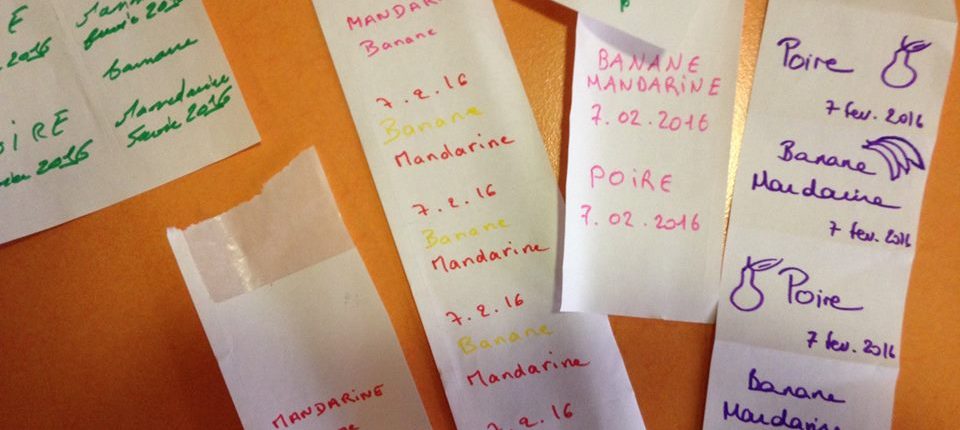 E
2016
IRE
2016
février 2016
Banane
Mandarine
février 2016
MANDARINE
MANDARI
Banane
7.2.16
Banane
Mandarine
7.2.16
Banane
Mandarine
7.2.16
Banane
Mandarine
7.2.16
BANANE
MANDARINE
7.02.2016
POIRE
7.02.2016
Poire
7 fev. 2016
Banane
Mandarine
7 fev. 2016
Poire
7 fev. 2016
Banane
Mandarin